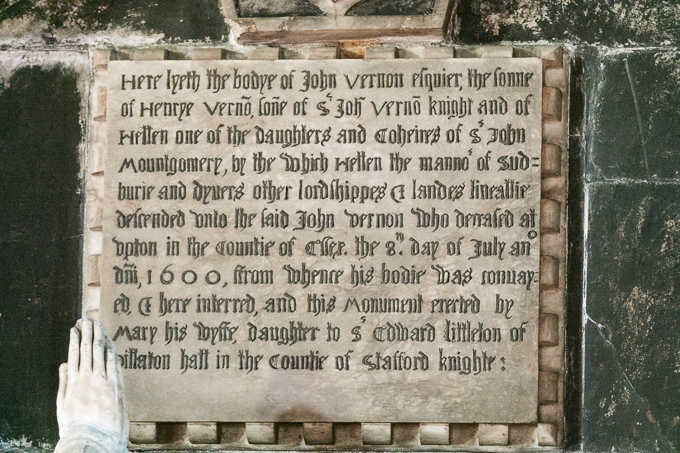 Here lyeth the bodye of John Vernon esquier, the sonne
of Henrye Vernō, sone of Sʳ Joħ Vernō knight and of
Hellen one of the daughters and Coheires of Sʳ John
Mountgomery, by the which Hellen the mannoʳ of Sud=
burie and dyvers other lordshippes & landes lineallie
descended vnto the said John Vernon who deceased at
vpton in the Countie of Essex. the 8ᵗʰ day of July anᵒ
dñi, 1600, ffrom whence his bodie was convay=
ed, & here interred, and this Monument erected by
Mary his wyffe, daughter to Sʳ Edward littleton of
pillaton hall in the Countie of Stafford knighte: